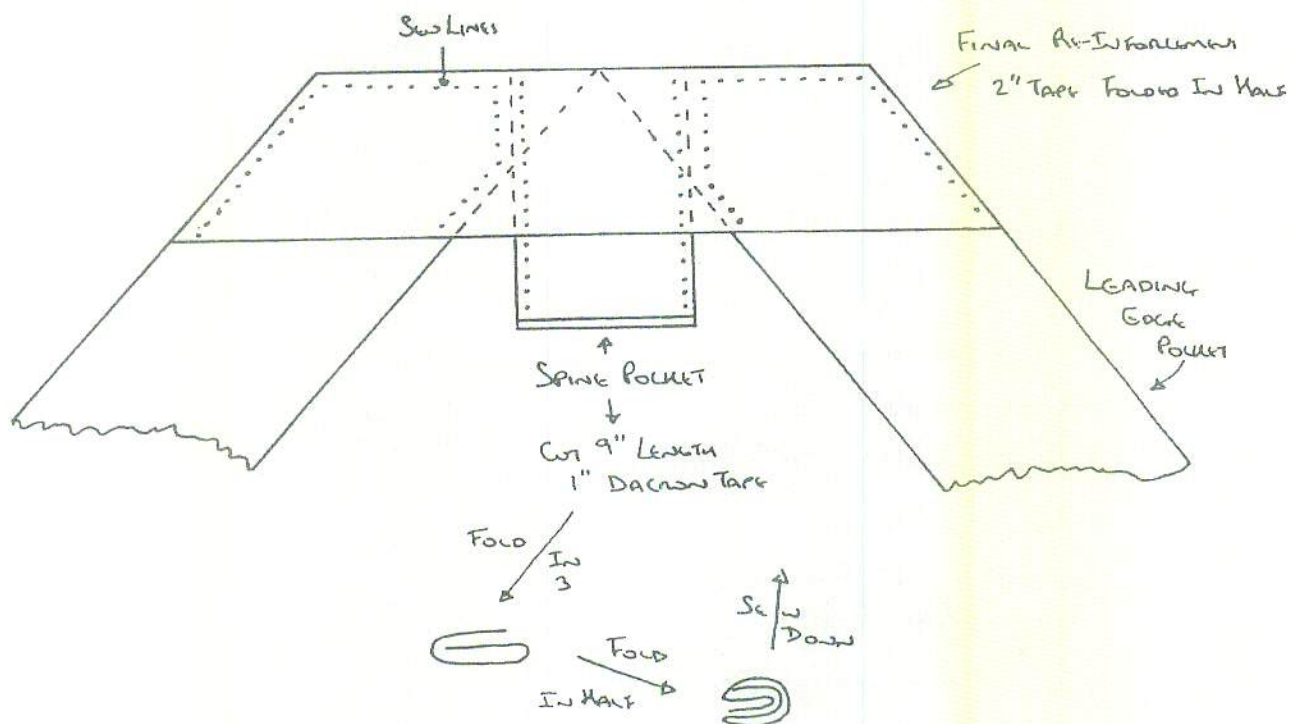 SEW LINES
FINAL RE-INFORCEMENT
2" TAPE FOLDED IN HALF
LEADING
EDGE
POCKET
SPINE POCKET
CUT 9" LENGTH
1" DACRON TAPE
FOLD
IN
3
FOLD
IN HALF
SEW
DOWN